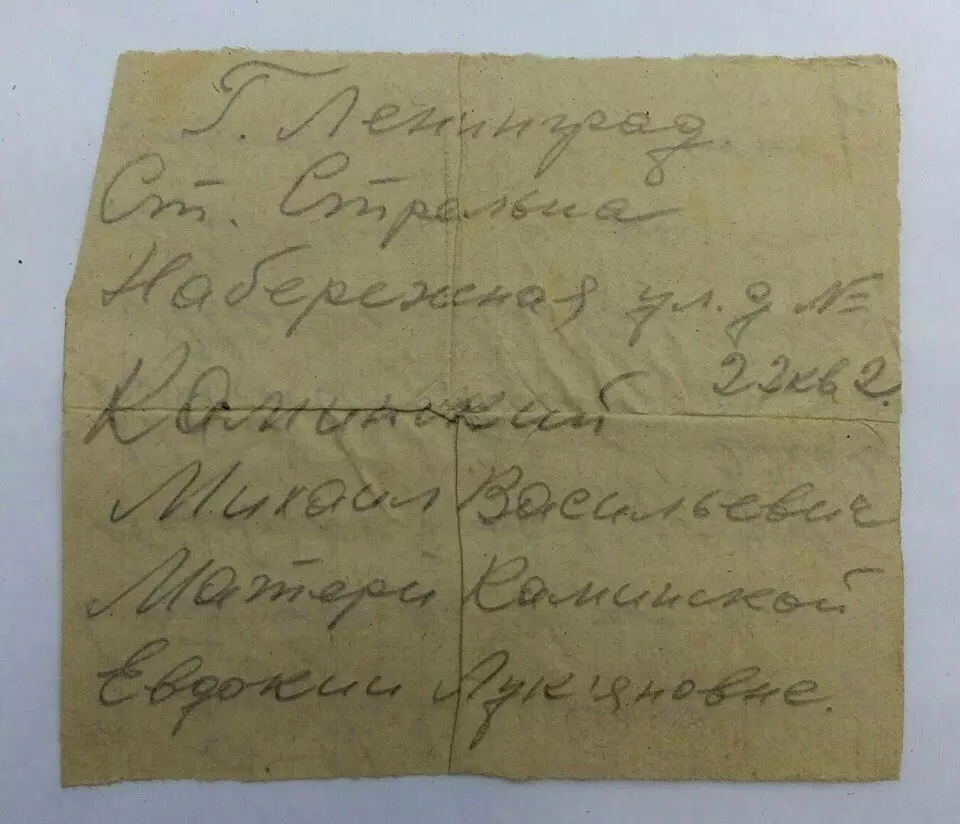 Г. Ленинград.
Ст. Стрельна
Набережная ул. д №
22 кв 2.
Каминский
Михаил Васильевич
Матери Каминской
Евдокии Лук'яновне.